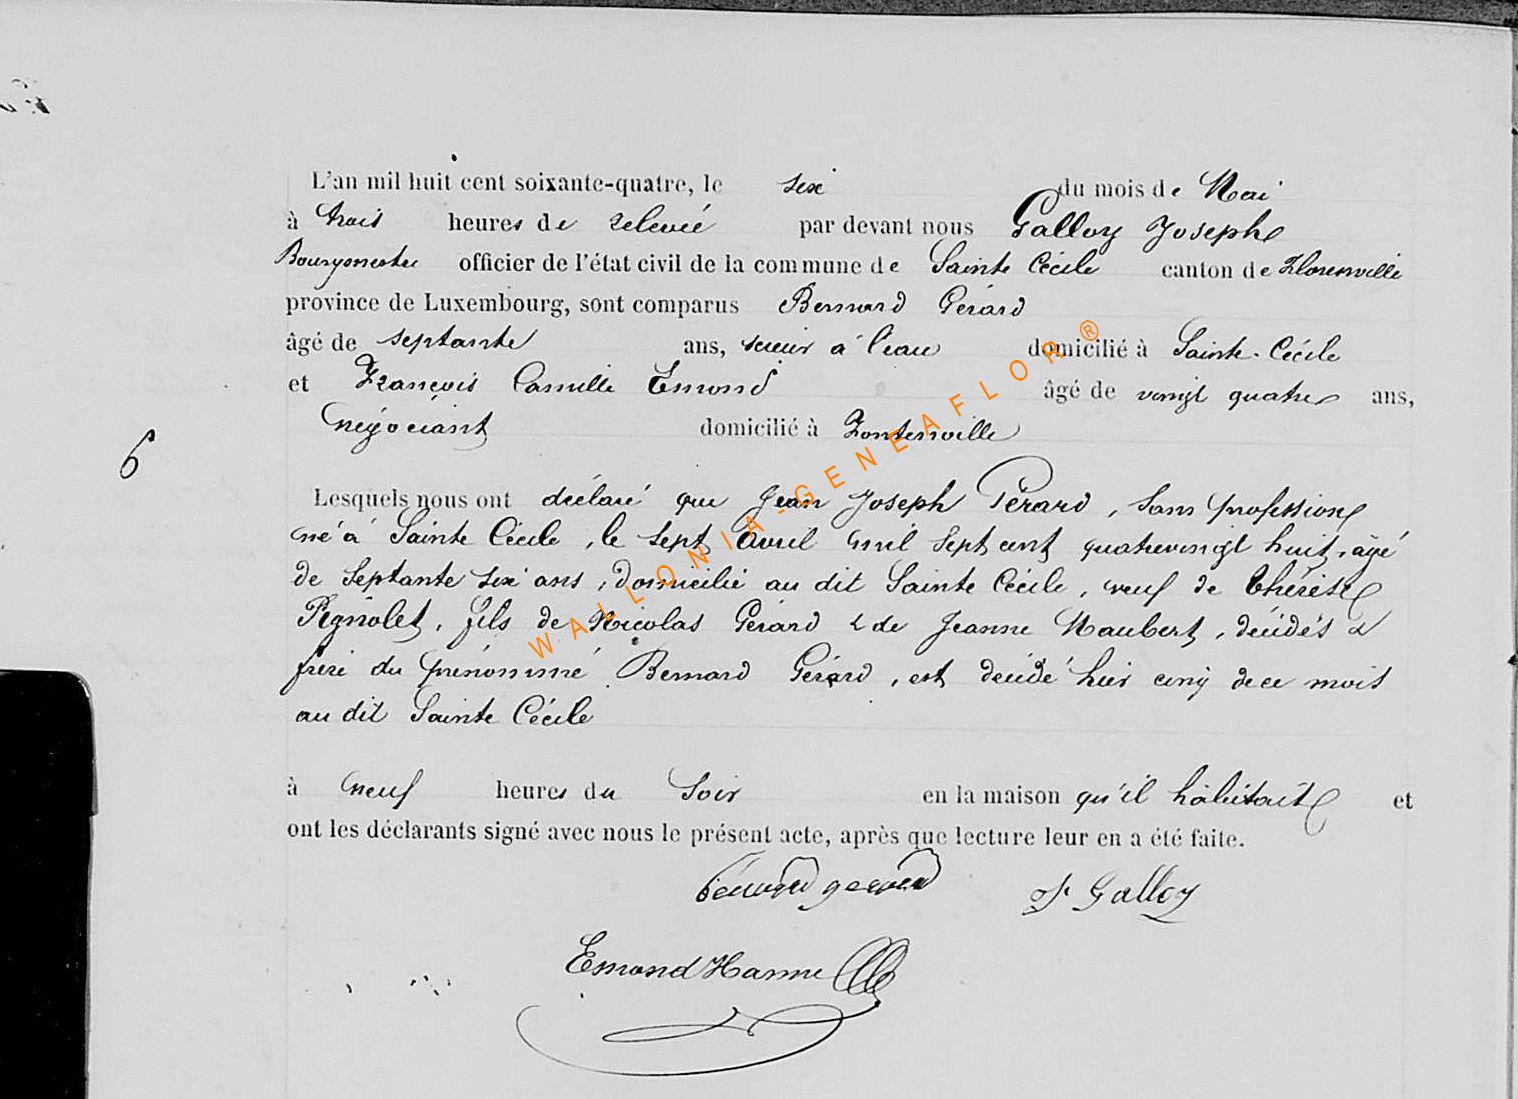 L'an mil huit cent soixante-quatre, le six du mois de Mai
à trois heures de relevée par devant nous Galloy Joseph
Bourgmestre officier de l'état civil de la commune de Sainte Cécile canton de Florenville
province de Luxembourg, sont comparus Bernard Gérard
âgé de septante ans, scieur à l'eau domicilié à Sainte-Cécile
et François Camille Emond âgé de vingt quatre ans,
négociant domicilié à Fontenoille
6
Lesquels nous ont déclaré que Jean Joseph Gérard, sans profession
né à Sainte Cécile, le sept Avril mil sept cent quatrevingt huit, âgé
de septante six ans, domicilié au dit Sainte Cécile, veuf de Thérèse
Pignolet, fils de Nicolas Gérard & de Jeanne Maubert, décédés &
frère du prénommé Bernard Gérard, est décédé hier cinq de ce mois
au dit Sainte Cécile
à neuf heures du soir en la maison qu'il habitait et
ont les déclarants signé avec nous le présent acte, après que lecture leur en a été faite.
bernard gerard J. Galloy
Emond Hanne
WALLONIA-GENEAFLOR®